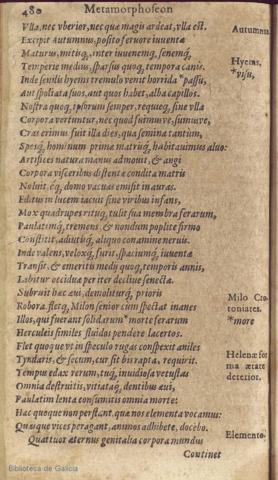 480 Metamorphoseon
Vlla, nec vberior, nec quæ magis ardeat, vlla est.
Excipit autumnus, posito feruore iuuentæ
Autumnus
Maturus, mitisq́, inter iuuenemq́, senemq́,
Temperie medius, sparsus quoq, tempora canis.
Inde senilis hyems tremulo venit horrida *passu,
Hyems,
*visu,
Aut spoliata suos, aut quos habet, alba capillos.
Nostra quoq, ipsorum semper, requieq, sine vlla
Corpora vertuntur, nec quod fuimusve, sumusve,
Cras erimus fuit illa dies, qua semina tantùm,
Spesq́, hominum primæ matriq́, habitauimus aluo:
Artifices natura manus admouit, & angi
Corpora visceribus distentæ condita matris
Noluit, èq, domo vacuas emisit in auras.
Editus in lucem iacuit sine viribus infans,
Mox quadrupes rituq, tulit sua membra ferarum,
Paulatimq́, tremens, & nondum poplite firmo
Constitit, adiutisq́, aliquo conamine neruis.
Inde valens, veloxq́, fuit, spaciumq́, iuuentæ
Transit, & emeritis medij quoq, temporis annis,
Labitur occiduæ per iter decliue senectæ.
Subruit hæc æui, demoliturq́, prioris
Robora. fletq́, Milon senior cum spectat inanes
Milo Cro-
toniates.
Illos, qui fuerant solidarum *morte ferarum
*more
Herculeis similes fluidos pendere lacertos.
Flet quoque vt in speculo rugas conspexit aniles
Tyndaris, & secum, cur sit bis rapta, requirit.
Helenæ for
ma ætate
deterior.
Tempus edax rerum, tuq́, inuidiosa vetustas
Omnia destruitis, vitiataq́, dentibus æui,
Paulatim lenta consumitis omnia morte:
Hæc quoque non perstant, quæ nos elementa vocamus:
Quasque vices peragant, animos adhibete, docebo.
Elemento-
Quattuor æternus genitalia corpora mundus
Continet
Biblioteca de Galicia